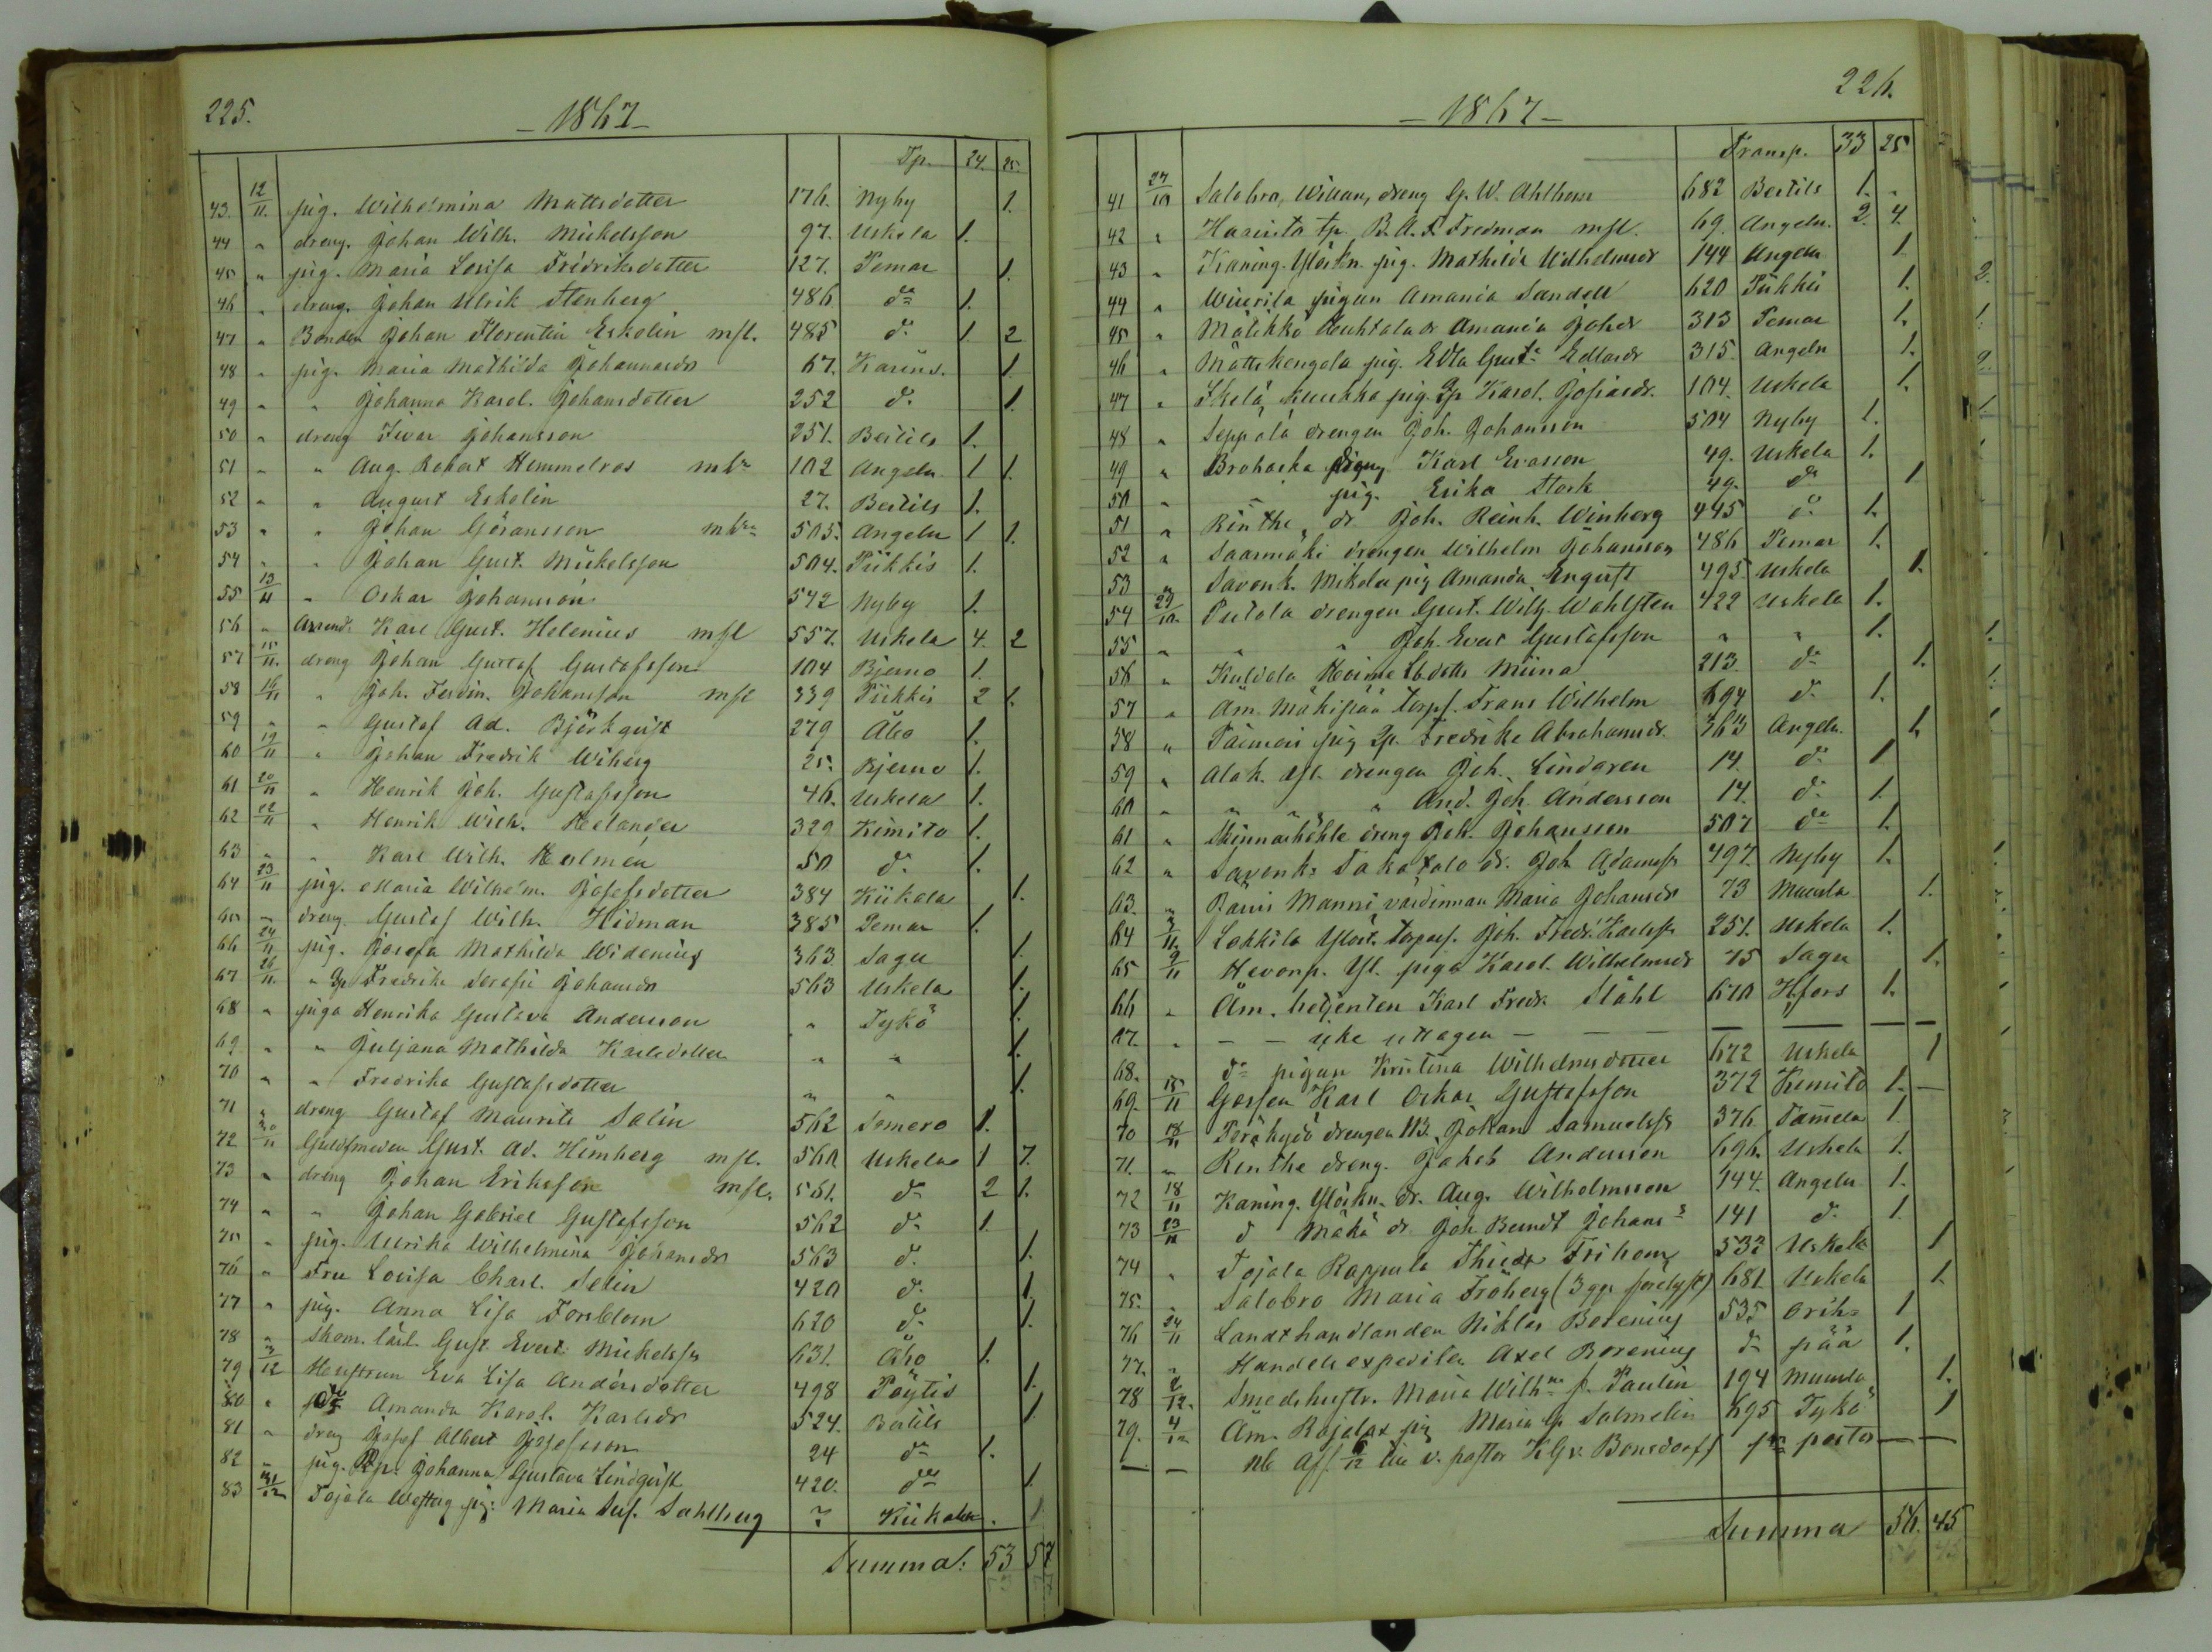 225.
- 1867 -
Tp. 24. 25.
43. 12/11. pig. Wilhelmina Mattsdotter 176. Nyby 1.
44 " dreng. Johan Wilh. Mickelsson 97. Uskela 1.
45 " pig. Maria Lovisa Fridriksdotter 127. Pemar 1.
46 " dreng. Johan Ulrik Stenberg 486 do 1.
47 " Bonden Johan Florentin Eskolin mfl. 485 do 1 2
48 " pig. Maria Mathilda Johannasdr 67. Karins. 1.
49 " " Johanna Karol. Johansdotter 252 do 1.
50 " dreng Iwar Johansson 251. Bertils 1.
51 " " Aug. Robert Hemmelroos 102 Angeln 1 1.
52 " " August Eskolin 27. Bertils 1.
53 " " Johan Göransson 505. Angeln 1 1.
54 " " Johan Gust. Mickelsson 504. Piikkis 1.
55 13/11 " Oskar Johansson 542 Nyby 1.
56 " Arrend. Karl Gust. Helenius mfl 557. Uskela 4. 2
57 15/11. dreng Johan Gustaf Gustafsson 104 Bjerno 1.
58 16/11 " Joh. Ferdin. Johansson mfl 339 Piikkis 2 1.
59 " " Gustaf Ad. Björkqvist 279 Åbo 1.
60 19/11 " Johan Fredrik Wiberg 25. Bjerno 1.
61 20/11 " Henrik Joh. Gustafsson 46. Uskela 1.
62 22/11 " Henrik Wilh. Helander 329 Kimito 1.
63 " " Karl Wilh. Holmén 50 do 1.
64 23/11 pig. Maria Wilhelm. Josefsdotter 384 Kiikala 1.
65 " dreng Gustaf Wilh. Hidman 385 Pemar 1.
66 24/11 pig. Josefa Mathilda Widenius 363 Sagu 1.
67 26/11. " Fredrika Serafia Johansdr 563 Uskela 1.
68 " piga Henrika Gustava Andersson " Tykö 1.
69 " " Juljana Mathilda Karlsdotter " " 1.
70 " " Fredrika Gustafsdotter " " 1.
71 " dreng Gustaf Mauritz Salin 562 Somero 1.
72 30/11 Guldsmeden Gust. Ad. Himberg mfl. 560 Uskela 1 7.
73 " dreng Johan Eriksson mfl. 561. do 2 1.
74 " " Johan Gabriel Gustafsson 562 do 1.
75 " pig. Ulrika Wilhelmina Johansdr 563 do 1.
76 " Fru Lovisa Charl. Selin 420 do 1.
77 " pig. Anna Lisa Forsblom 620 do 1.
78 " Skom. lärl. Gust. Evert Mickelsson 631. Åbo 1.
79 3/12 Hustrun Eva Lisa Andersdotter 498 Pöytis 1.
80 " Amanda Karol. Karlsdr 524. Bertils 1
81 " dreng Josef Albert Josefsson 24 do 1.
82 " pig. Johanna Gustava Lindqvist 420. do 1
83 31/12 Tojala Westerg pig. Maria Sahlberg ? Kiikala. 1
Summa: 53 57
226.
- 1867 -
Transp. 33 25
41 27/10 Salobro, Willan, dreng G. W. Ahlbom 682 Bertils 1. "
42 " B. A. F. Fredman mfl. 69. Angeln. 2. 4.
43 " Kaning. pig. Mathilda Wilhelmsdr 144 Angeln 1
44 " Wiurila pigan Amanda Sandell 620 Piikkis 1.
45 " Mälikkö Huhtala dr Amanda Johdr 313 Pemar 1.
46 " pig. Edla Gusta. 315. Angeln 1.
47 " Kurkka pig. Karol. 104. Uskela 1.
48 " Seppälä drengen Joh. Johansson 504 Nyby 1.
49 " Brohaska dreng Karl Evasson 49. Uskela 1.
50 " " pig. Erika Stark 49. do 1
51 " Rinthe " dr. Joh. Reinh. Winberg 445 do 1.
52 " Saarimäki drengen Wilhelm Johansson 486 Pemar 1.
53 " Savenk. Mikola pig Amanda Enqvist 495. Uskela 1.
54 29/10. Putola drengen Gust. Wilh. Wahlsten 422 Uskela 1.
55 " " " Joh. Evert Gustafsson " " 1.
56 " Miina 213. do 1.
57 " Åm. Mäkipää Torps. Frans Wilhelm 694 do 1.
58 " pig Fredrika Abrahamsdr 363 Angeln. 1.
59 " Alah. drengen Joh. Lindgren 14. do 1
60 " " " And. Joh. Andersson 14. do 1.
61 " dreng Joh. Johansson 507 do 1.
62 " Savenk. Takatalo dr. Joh Adamss 497. Nyby 1.
63. " Manni värdinnan Maria Johansdr 73 Muurla 1.
64 3/11. Lakkila torpars. Joh. Fredr. Karlss 251. Uskela 1.
65 9/11 piga Karol. Wilhelmsdr 75 Sagu 1.
66 " Åm. betjenten Karl Fredr. Ståhl 610 H:fors 1.
67. " - - icke uttagen - - - - - - -
68. do pigan Kristina Wilhelmsdotter 672 Uskela 1
69. 15/11 Gossen Karl Oskar Gustafsson 372 Kimito 1. -
70 18/11 drengen Johan Samuelss 376. Tammela 1
71. " Rinthe dreng. Jakob Andersson 696. Uskela 1.
72 18/11 Kaning. dr. Aug. Wilhelmsson 144. Angeln 1.
73 23/11 do Mäkä dr. Joh. Berndt Johans 141 do 1.
74 " Tojala Rappula 532 Uskela 1
75. " Salobro Maria Fröberg (3 ggr förelyst) 681. Uskela 1.
76 24/11 Landthandlanden Niklas Borenius 535 Orih- 1
77. " Handelsexpediten Axel Borenius do pää 1.
78 2/12. Smedshustr. Maria Wilhna f. Paulin 194 Muurla 1.
79. 4/12 Åm. pig Maria Salmelin 695 Tykö 1
- - v. pastor Bonsdorff - -
Summa 56. 45